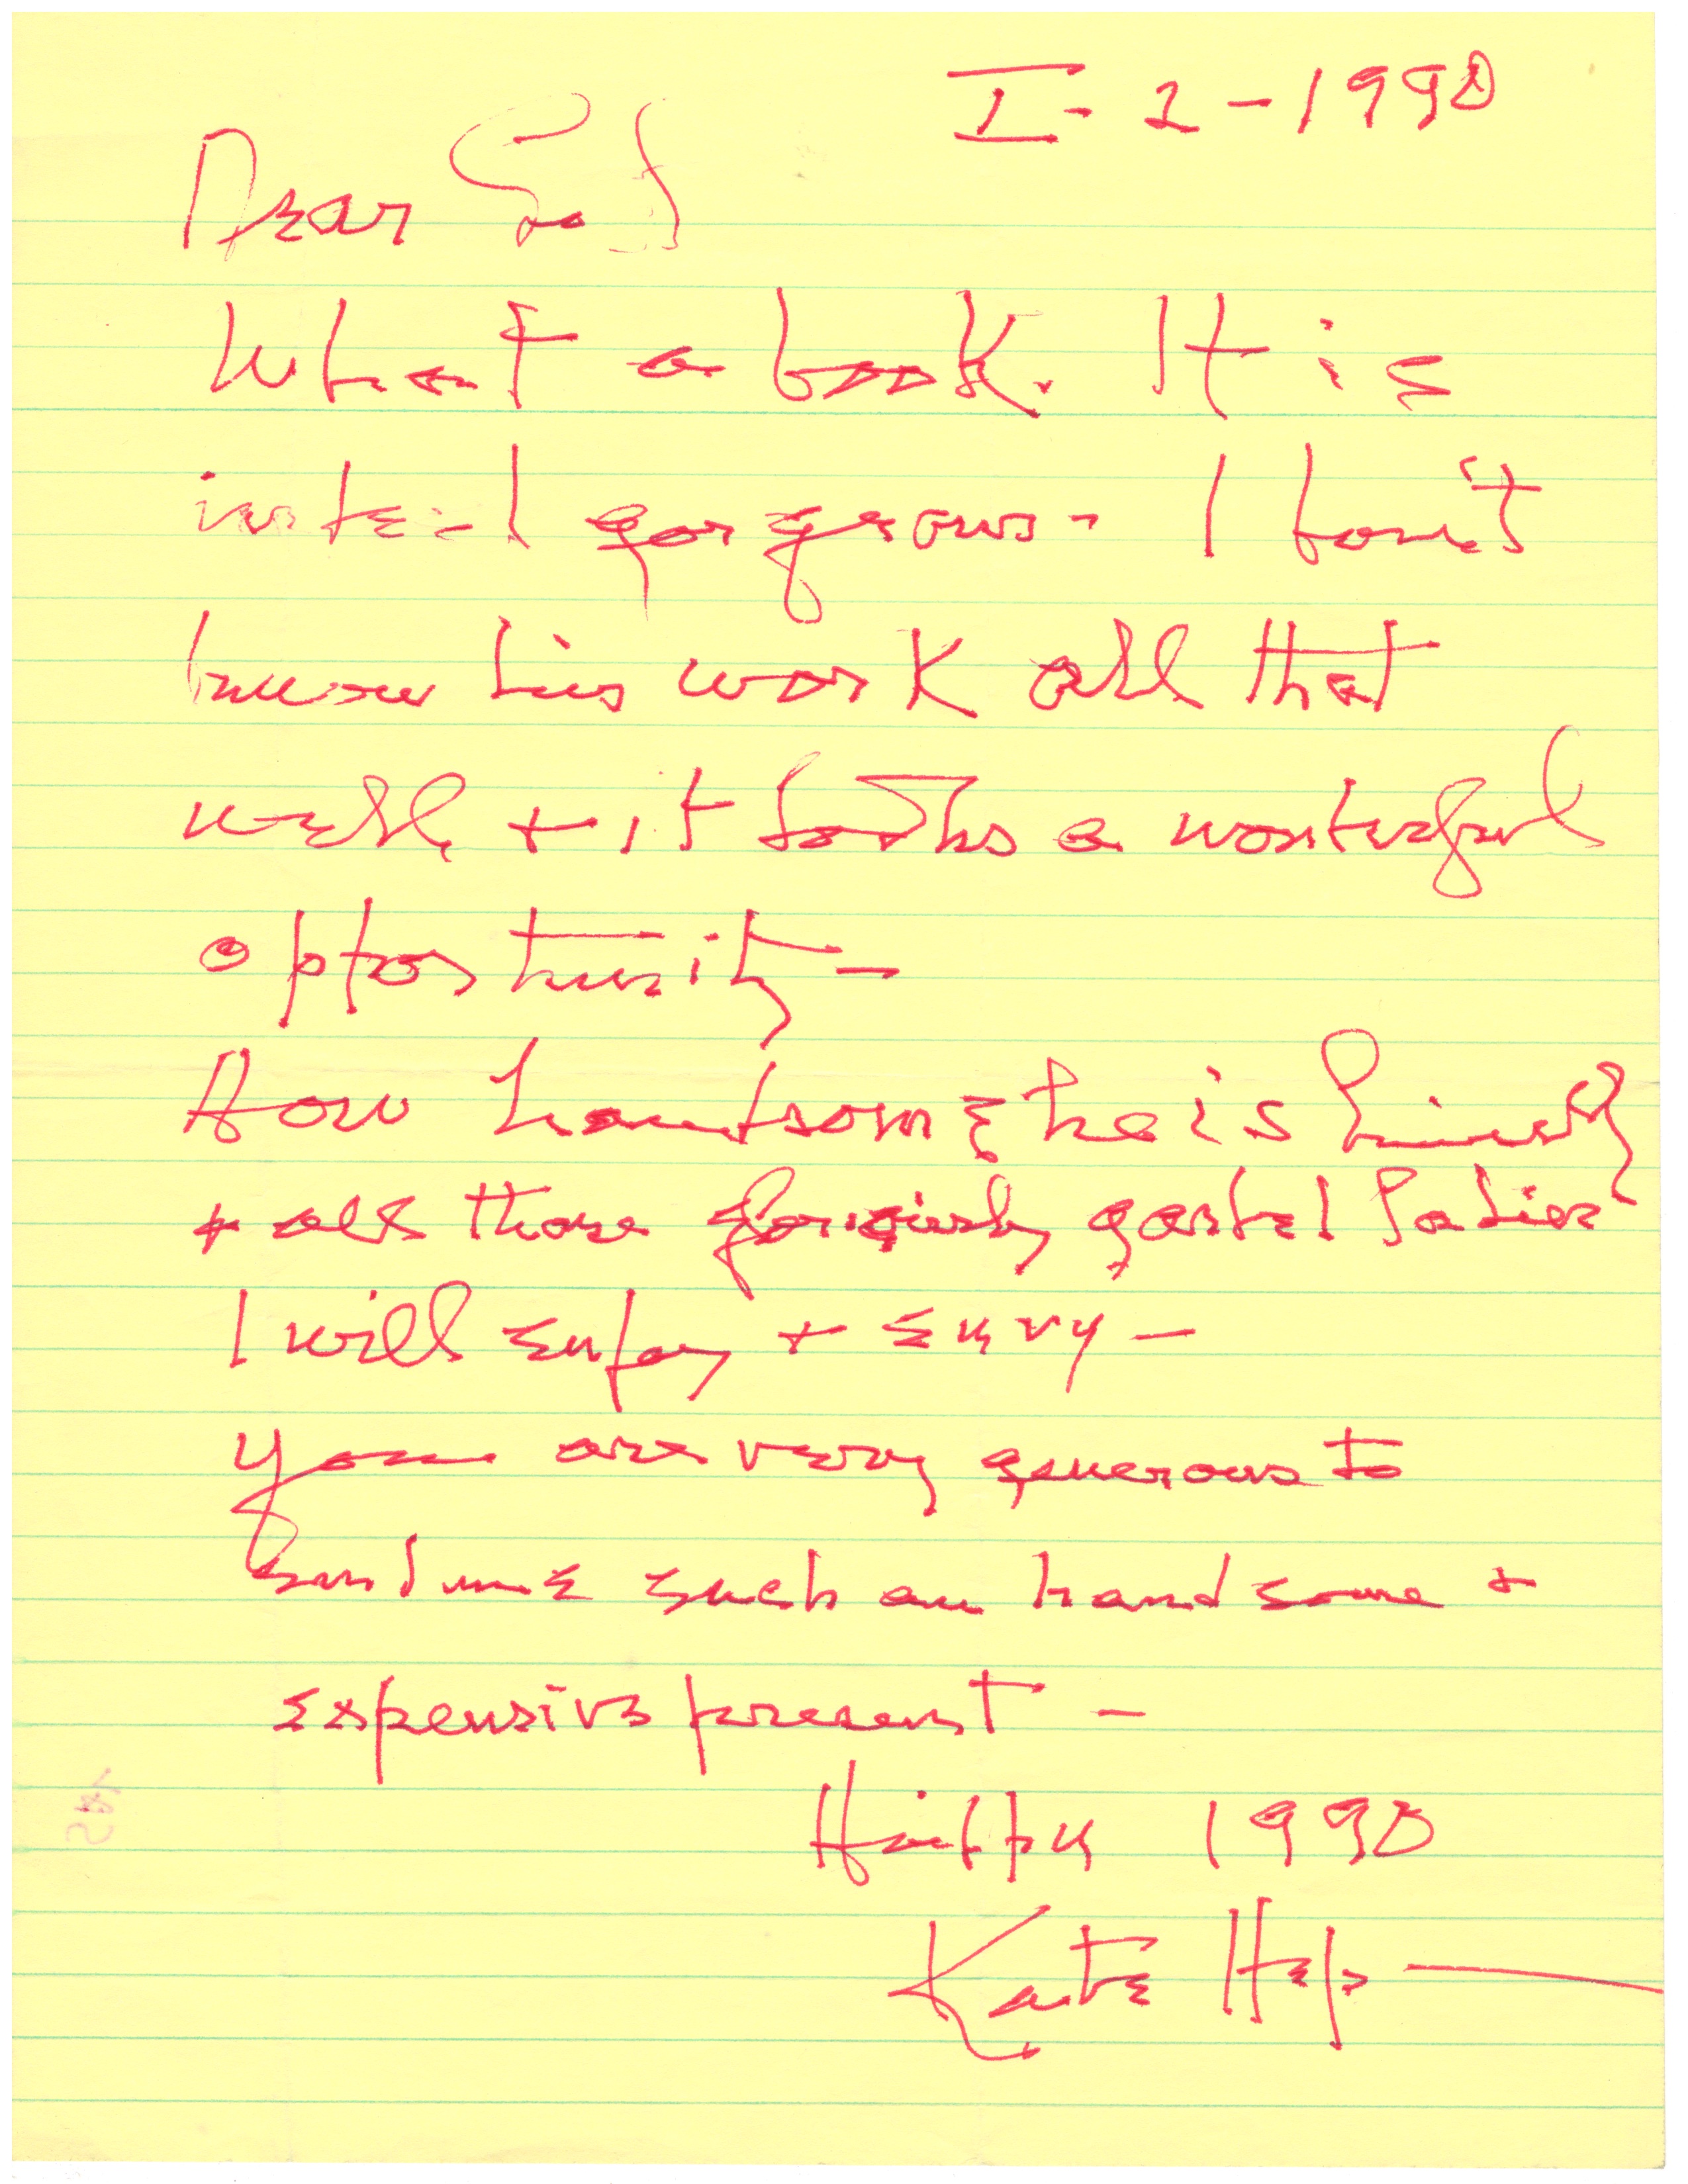 I - 2 - 1990
Dear
What a book. It is
indeed gorgeous - I don't
know his work all that
well + it looks a wonderful
opportunity -
How handsome he is himself
+ all those gorgeously ladies
I will enjoy + envy -
You are very generous to
send me such an handsome +
expensive present -
Happy 1990
Kate Hep